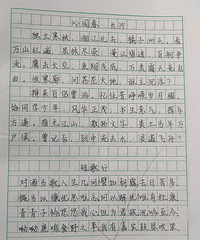 沁园春 长沙
独立寒秋，湘江北去，橘子洲头，看
万山红遍，层林尽染，漫江碧透，百舸争
流，鹰击长空，鱼翔浅底，万类霜天竞自
由，怅寥廓，问苍茫大地，谁主沉浮？
携来百侣曾游，忆往昔峥嵘岁月稠，
恰同学少年，风华正茂，书生意气，挥斥
方遒，指点江山，激扬文字，粪土当年万
户侯，曾记否，到中流击水，浪遏飞舟？
短歌行
对酒当歌人生几何譬如朝露去日苦多，
慨当以慷忧思难忘何以解忧唯有杜康
青青子衿悠悠我心但为君故沉吟至今，
呦呦鹿鸣食野之苹我有嘉宾鼓瑟吹笙